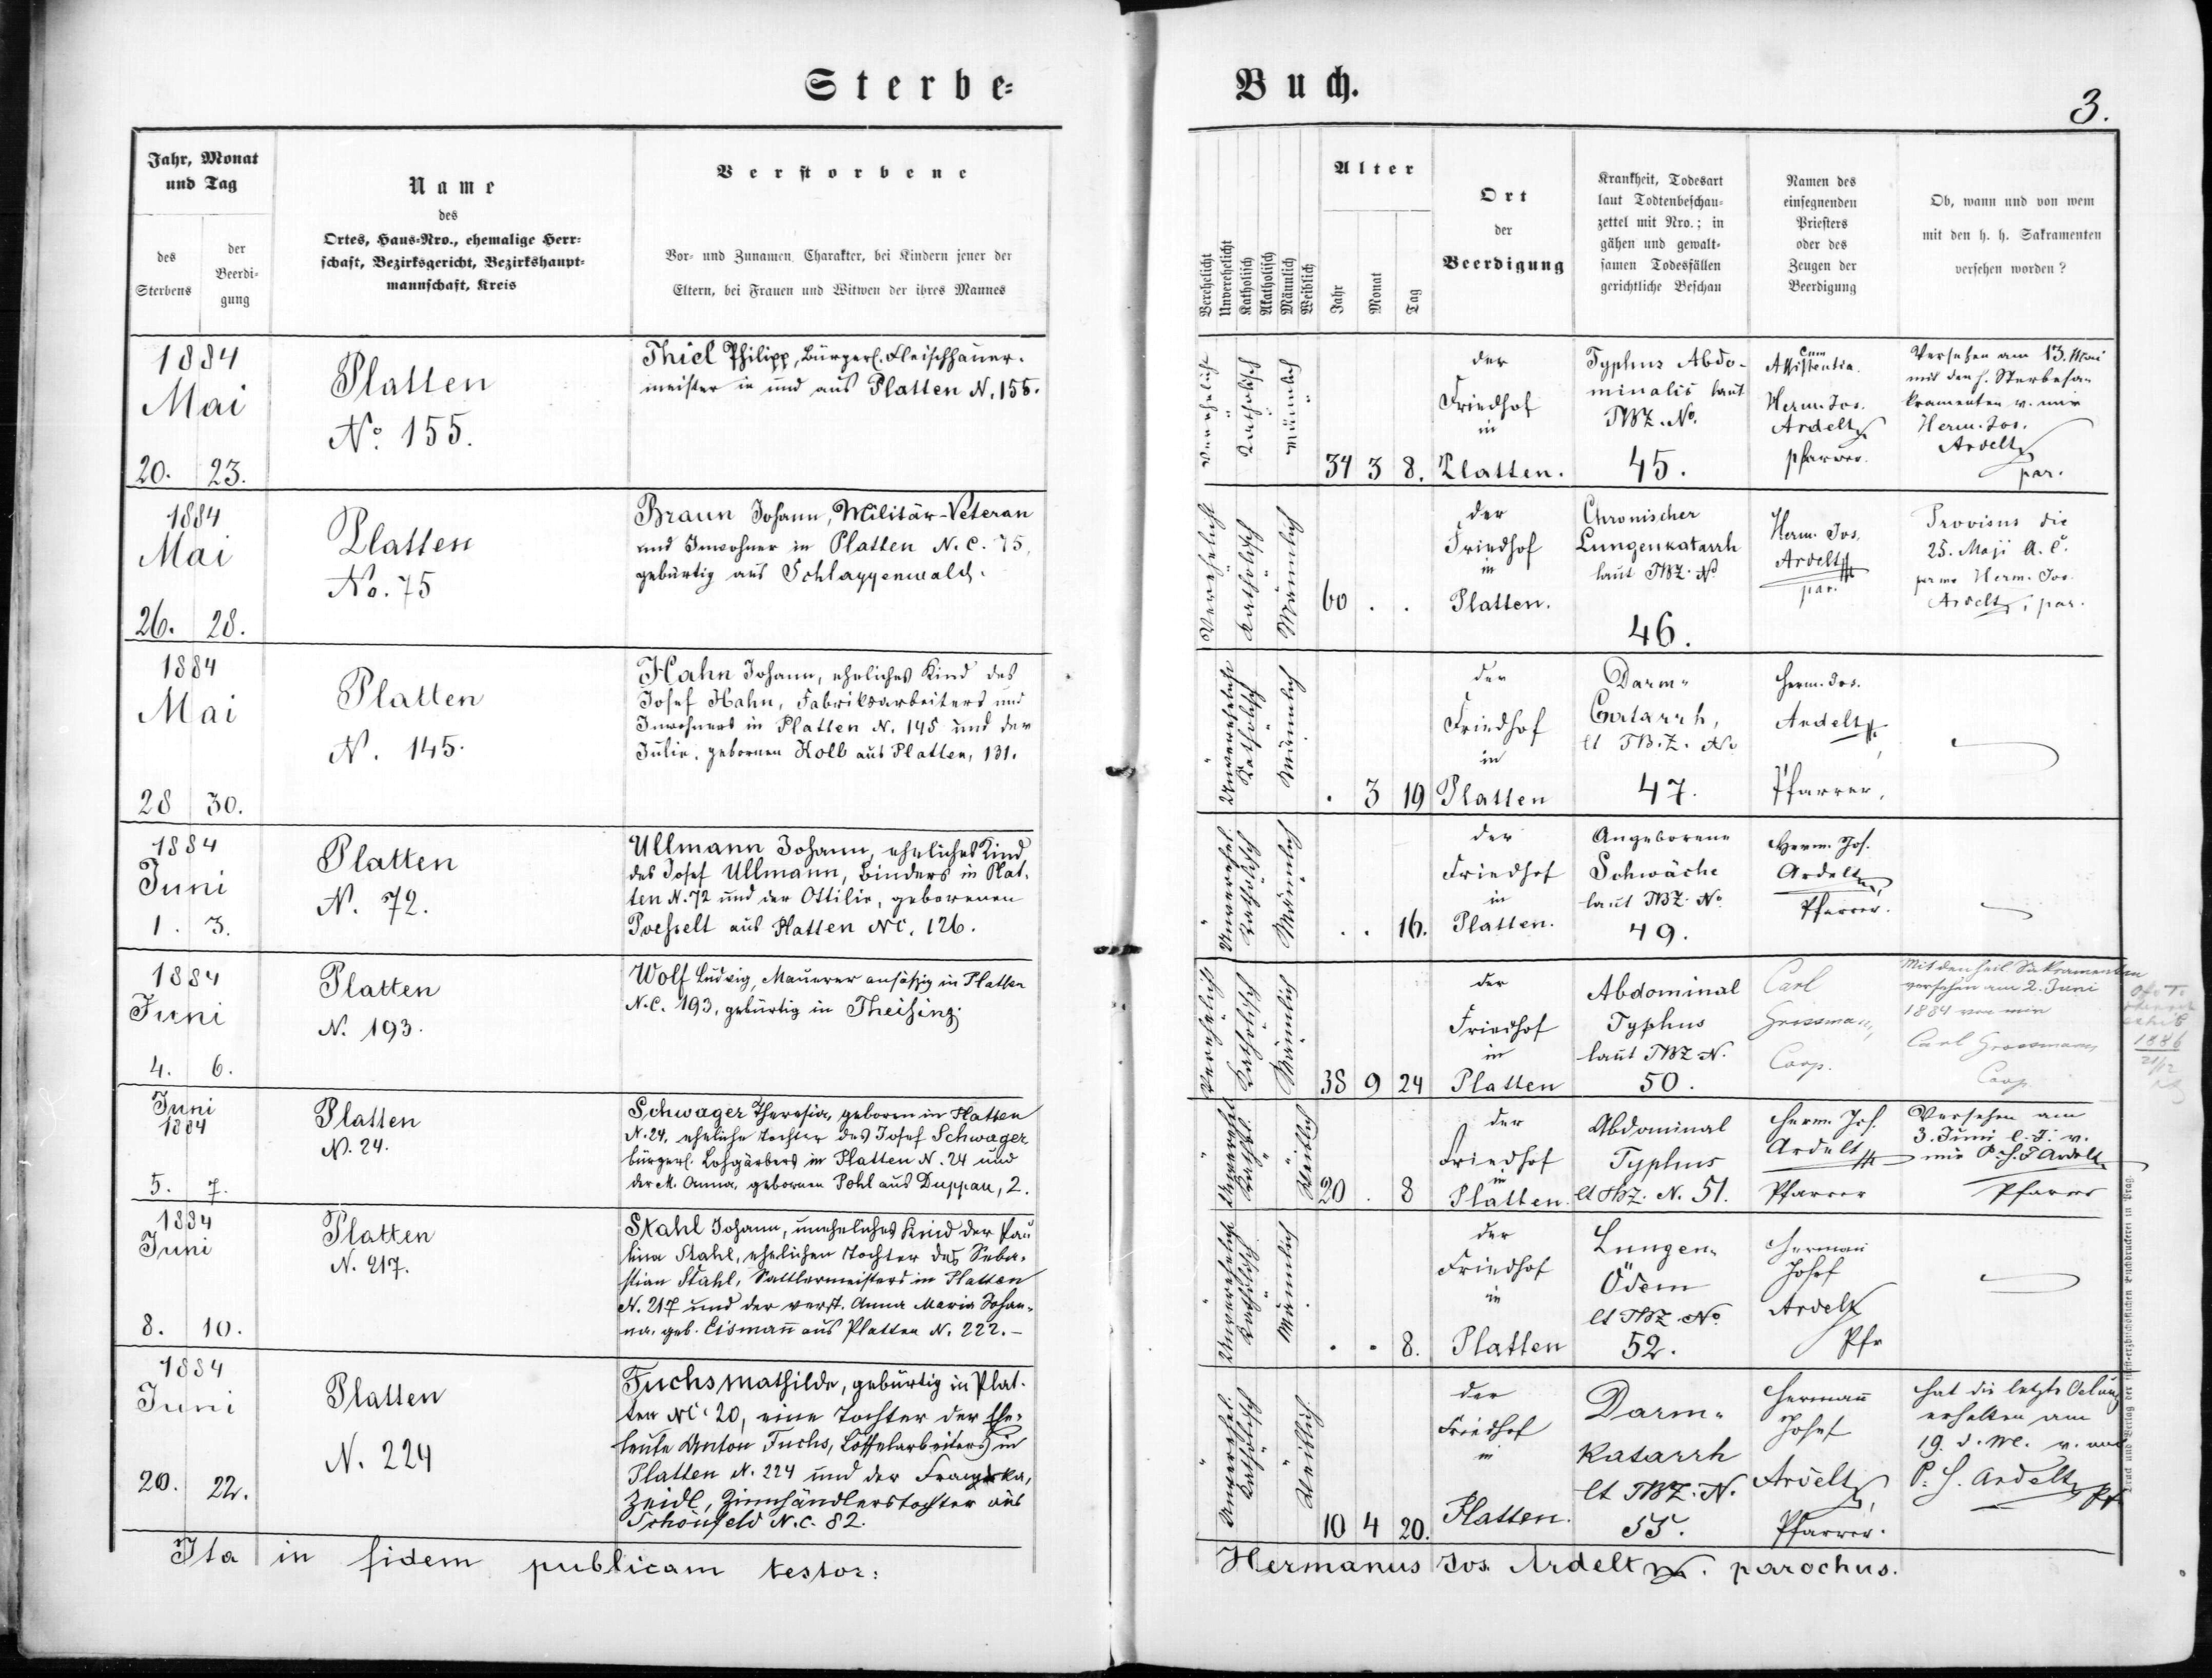 Sterbe-
Buch.
3.
Jahr, Monat
und Tag
des
Sterbens
der
Beerdi-
gung
Name
des
Ortes, Haus-Nro., ehemalige Herr-
schaft, Bezirksgericht, Bezirkshaupt-
mannschaft, Kreis
Verstorbene
Vor- und Zunamen, Charakter, bei Kindern jener der
Eltern, bei Frauen und Witwen der ihres Mannes
Verehelicht
Unverehelicht
Katholisch
Akatholisch
Männlich
Weiblich
Alter
Jahr
Monat
Tag
Ort
der
Beerdigung
Krankheit, Todesart
laut Todtenbeschau-
zettel mit Nro.; in
gähen und gewalt-
samen Todesfällen
gerichtliche Beschau
Namen des
einsegnenden
Priesters
oder des
Zeugen der
Beerdigung
Ob, wann und von wem
mit den h. h. Sakramenten
versehen worden?
1884
Mai
20. 23.
Platten
No. 155.
Thiel Philipp, bürgerl. Fleischhauer-
meister in und aus Platten N. 155.
Verehelicht
Katholisch
Männlich
34 3 8.
der
Friedhof
in
Platten.
Typhus Abdo-
minalis laut
TBZ. No.
45.
Cum
Assistentia.
Herm. Jos.
Ardelt
Pfarrer.
Versehen am 13. Mai
mit den h. Sterbesa-
kramenten v. mir
Herm. Jos.
Ardelt
par.
1884
Mai
26. 28.
Platten
No. 75
Braun Johann, Militär-Veteran
und Inwohner in Platten N. C. 75,
gebürtig aus Schlaggenwald.
Verehelicht
Katholisch
Männlich
60 . .
der
Friedhof
in
Platten.
Chronischer
Lungenkatarrh
laut TBZ. No
46.
Herm. Jos.
Ardelt
par.
Provisus die
25. Maji a. c.
per me Herm. Jos.
Ardelt, par.
1884
Mai
28 30.
Platten
N. 145.
Hahn Johann, eheliches Kind des
Josef Hahn, Fabriksarbeiters und
Inwohners in Platten N. 145 und der
Julie, gebornen Kolb aus Platten, 131.
Unverehelicht
Katholisch
Männlich
. 3 19
der
Friedhof
in
Platten
Darm-
Catarrh,
lt TB.Z. No
47.
Herm. Jos.
Ardelt
Pfarrer.
1884
Juni
1. 3.
Platten
N. 72.
Ullmann Johann, eheliches Kind
des Josef Ullmann, Binders in Plat-
ten N. 72 und der Ottilie, geborenen
Poesselt aus Platten NC. 126.
Unverehel.
Katholisch
Männlich
. . 16.
der
Friedhof
in
Platten.
Angeborene
Schwäche
laut TBZ. No
49.
Herm. Jos.
Ardelt
Pfarrer.
1884
Juni
4. 6.
Platten
N. 193.
Wolf Ludwig, Maurer ansäßig in Platten
N. C. 193, gebürtig in Theising.
Verehelicht
Katholisch
Männlich
38 9 24
der
Friedhof
in
Platten
Abdominal
Typhus
laut TBZ N.
50.
Carl
Grossmann,
Coop.
Mit den heil. Sakramenten
versehen am 2. Juni
1884 von mir
Carl Grossmann,
Coop.
1886
21/12
Juni
1884
5. 7.
Platten
N. 24.
Schwager Theresia, geboren in Platten
N. 24, eheliche Tochter des Josef Schwager
bürgerl. Lohgärbers in Platten N. 24 und
der M. Anna, gebornen Pohl aus Duppau, 2.
Unverehel.
Kathol.
Weiblich
20 . 8
der
Friedhof
in
Platten.
Abdominal
Typhus
lt TBZ. N. 51.
Herm. Jos.
Ardelt
Pfarrer
Versehen am
3. Juni l. J. v.
mir P. H. J. Ardelt
Pfarrer
1884
Juni
8. 10.
Platten
N. 217.
Stahl Johann, uneheliches Kind der Pau-
lina Stahl, ehelichen Tochter des Seba-
stian Stahl, Sattlermeisters in Platten
N. 217 und der verst. Anna Maria Johan-
na, geb. Eismann aus Platten N. 222. –
Unverehelicht
Katholisch
Männlich
. . 8.
der
Friedhof
in
Platten
Lungen-
Ödem
lt TBZ No
52.
Herman
Josef
Ardelt
Pfr
1884
Juni
20. 22.
Platten
N. 224
Fuchs Mathilde, gebürtig in Plat-
ten NC. 20, eine Tochter der Ehe-
leute Anton Fuchs, Löffelarbeiters in
Platten N. 224 und der Franziska,
Zeidl, Zinnhändlerstochter aus
Schönfeld N. C. 82.
Unverehel.
Katholisch
Weiblich
10 4 20.
der
Friedhof
in
Platten.
Darm-
katarrh
lt TBZ. N.
55.
Hermann
Josef
Ardelt,
Pfarrer.
Hat die letzte Oelung
erhalten am
19. d. M. v.
P. H. Ardelt Pf
Ita in fidem publicam testor:
Hermanus Jos. Ardelt parochus.
Druck und Verlag der fürst-erzbischöflichen Buchdruckerei in Prag.